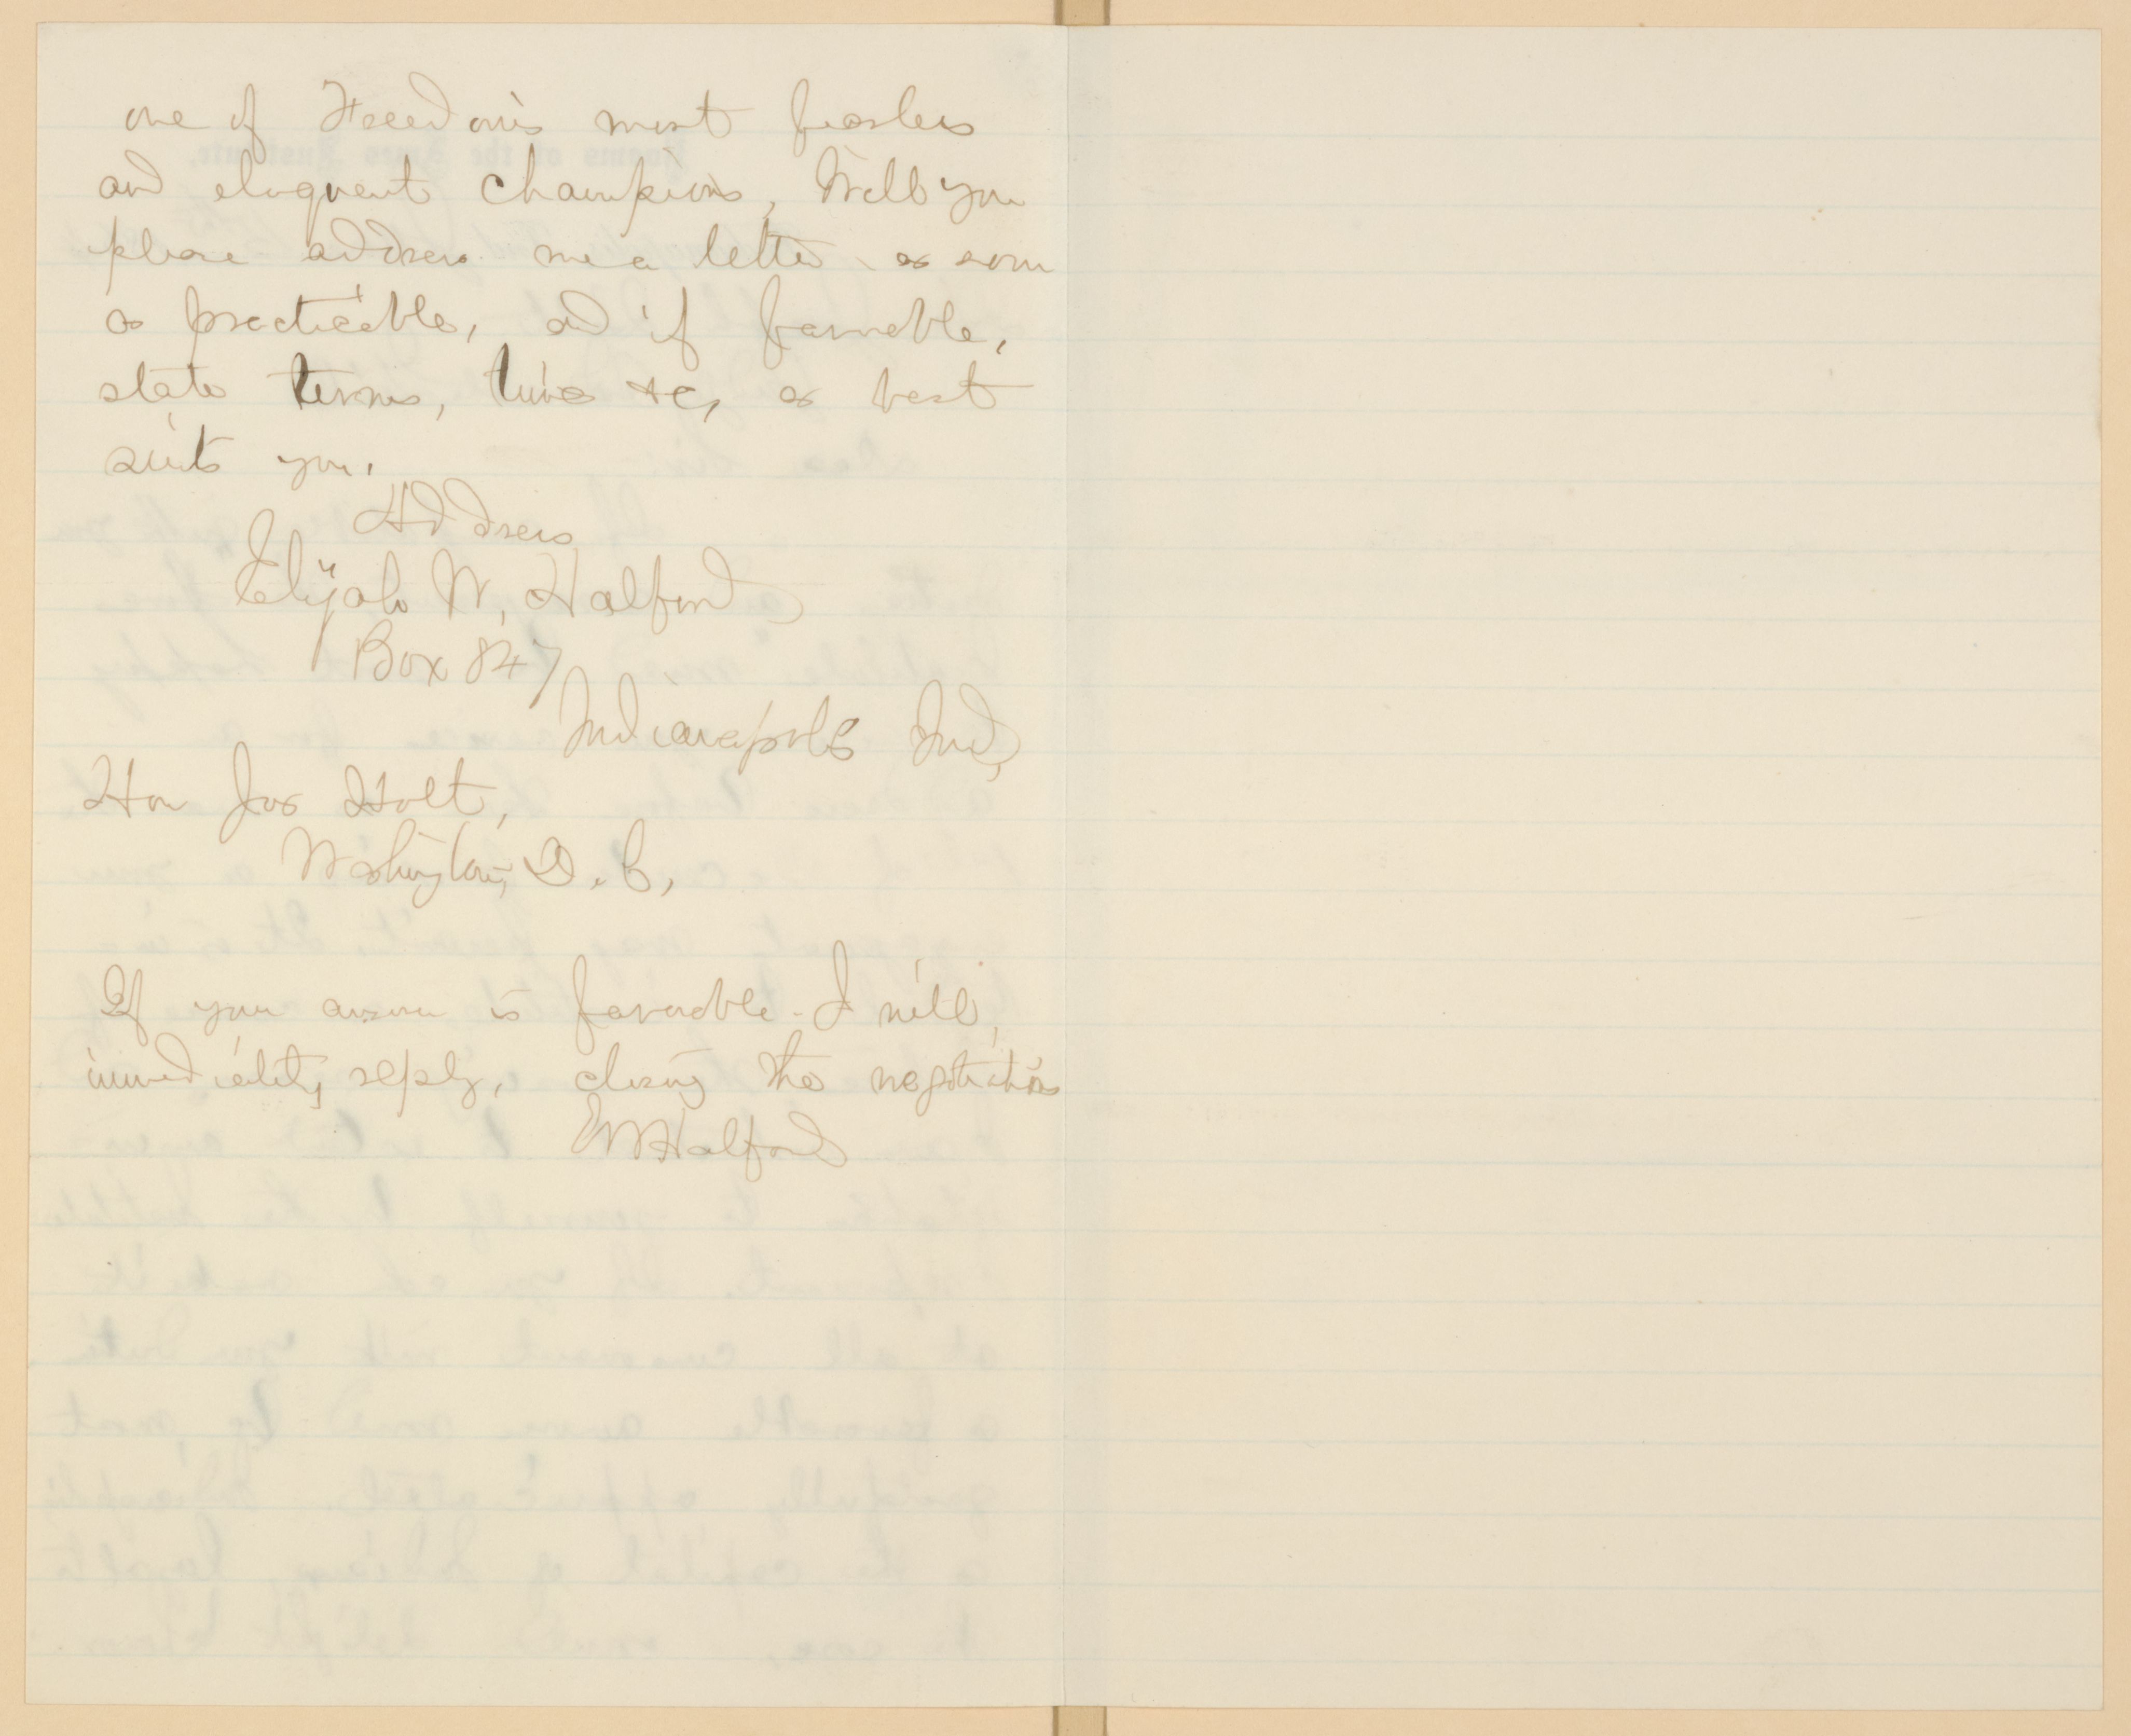 one of Freedom's most fearless
and eloquent champions, Will you
please address me a letter as soon
as practicable, and if favorable,
state terms, time &c, as best
suits you.
Address
Elijah W. Halford
Box 847
Indianapolis Ind,
Hon Jos Holt,
Washington, D. C,
If your answer is favorable - I will,
immediately reply, closing the negotiations
EWHalford